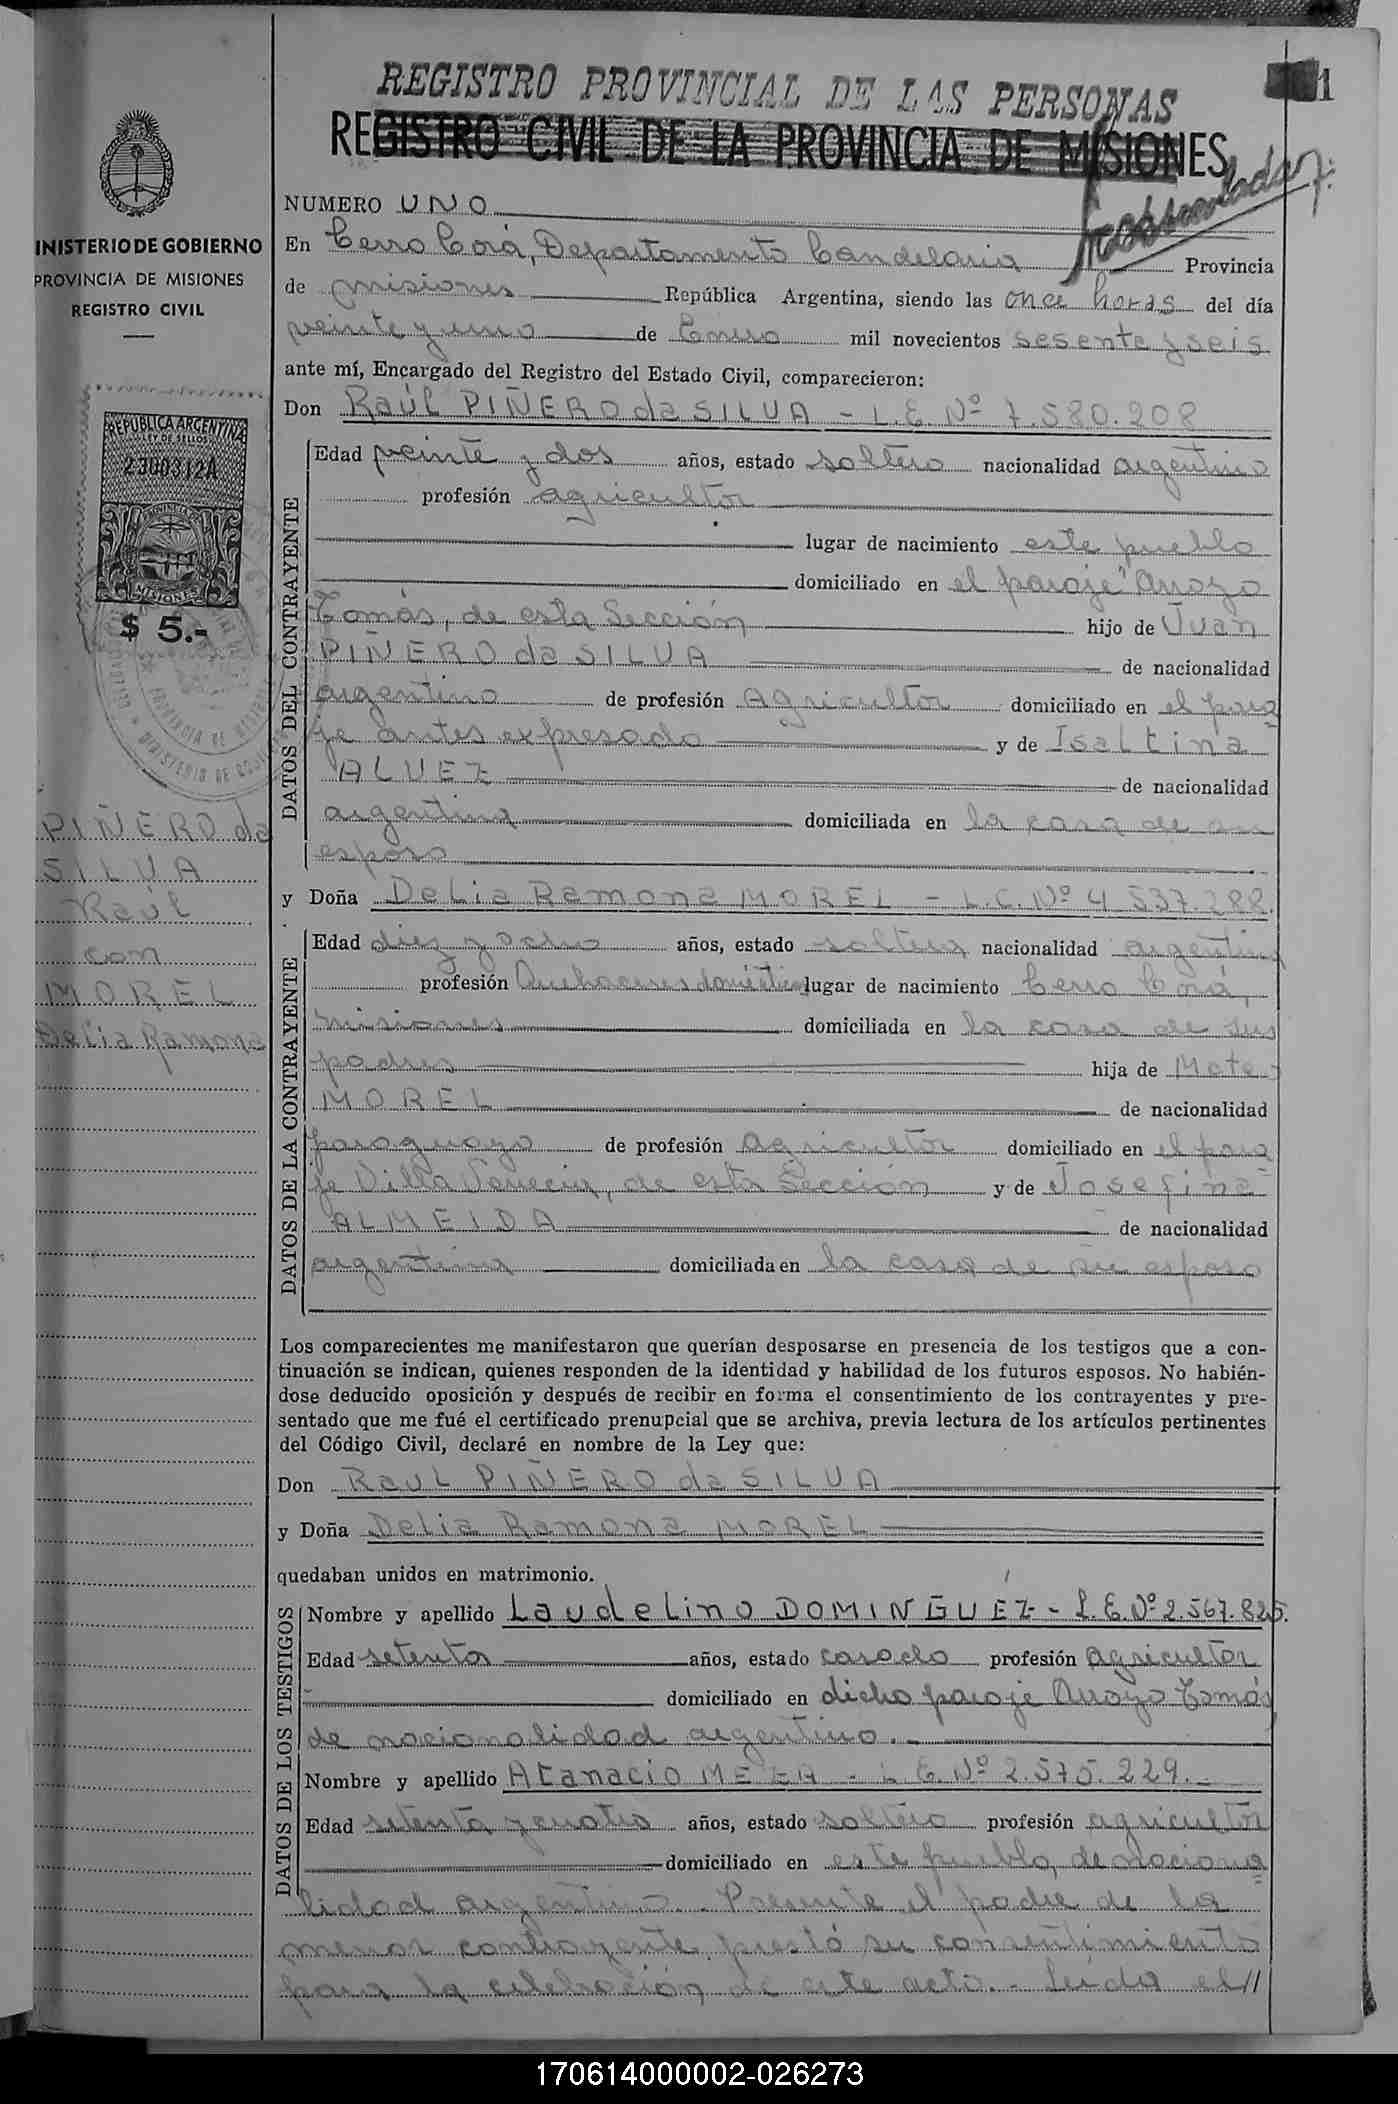 REGISTRO PROVINCIAL DE LAS PERSONAS
1
REGISTRO CIVIL DE LA PROVINCIA DE MISIONES
MINISTERIO DE GOBIERNO
PROVINCIA DE MISIONES
REGISTRO CIVIL
REPUBLICA ARGENTINA
LEY DE SELLOS
2300312A
PROVINCIA DE
MISIONES
$ 5.-
PIÑERO da
SILVA
Raúl
con
MOREL
Delia Ramona
NUMERO UNO
En Cerro Corá, Departamento Candelaria Provincia
de Misiones República Argentina, siendo las once horas del día
veinte y uno de Enero mil novecientos sesenta y seis
ante mí, Encargado del Registro del Estado Civil, comparecieron:
Don Raúl PIÑERO da SILVA - L.E. Nº 7.580.208
DATOS DEL CONTRAYENTE
Edad veinte y dos años, estado soltero nacionalidad argentino
profesión agricultor
lugar de nacimiento este pueblo
domiciliado en el paraje "Arroyo
Tomás, de esta Sección hijo de Juan
PIÑERO da SILVA de nacionalidad
argentino de profesión Agricultor domiciliado en el para
je antes expresado y de Isaltina
ALVEZ de nacionalidad
argentina domiciliada en la casa de su
esposo
y Doña Delia Ramona MOREL - L.C. Nº 4.537.288.
DATOS DE LA CONTRAYENTE
Edad diez y ocho años, estado soltera nacionalidad argentina
profesión Quehaceres domésticos lugar de nacimiento Cerro Corá,
Misiones domiciliada en la casa de sus
padres hija de Mateo
MOREL de nacionalidad
paraguayo de profesión Agricultor domiciliado en el para
je Villa Venecia, de esta Sección y de Josefina
ALMEIDA de nacionalidad
argentina domiciliada en la casa de su esposo
Los comparecientes me manifestaron que querían desposarse en presencia de los testigos que a con-
tinuación se indican, quienes responden de la identidad y habilidad de los futuros esposos. No habién-
dose deducido oposición y después de recibir en forma el consentimiento de los contrayentes y pre-
sentado que me fué el certificado prenupcial que se archiva, previa lectura de los artículos pertinentes
del Código Civil, declaré en nombre de la Ley que:
Don Raúl PIÑERO da SILVA
y Doña Delia Ramona MOREL
quedaban unidos en matrimonio.
DATOS DE LOS TESTIGOS
Nombre y apellido Laudelino DOMINGUEZ - L.E. Nº 2.567.825.
Edad setenta años, estado casado profesión agricultor
domiciliado en dicho paraje Arroyo Tomás
de nacionalidad argentino.-
Nombre y apellido Atanacio - L.E. Nº 2.575.229.-
Edad setenta y cuatro años, estado soltero profesión agricultor
domiciliado en este pueblo, de naciona
lidad argentino.- Presente el padre de la
menor contrayente, prestó su consentimiento
para la celebración de este acto.- Leída el//
170614000002-026273